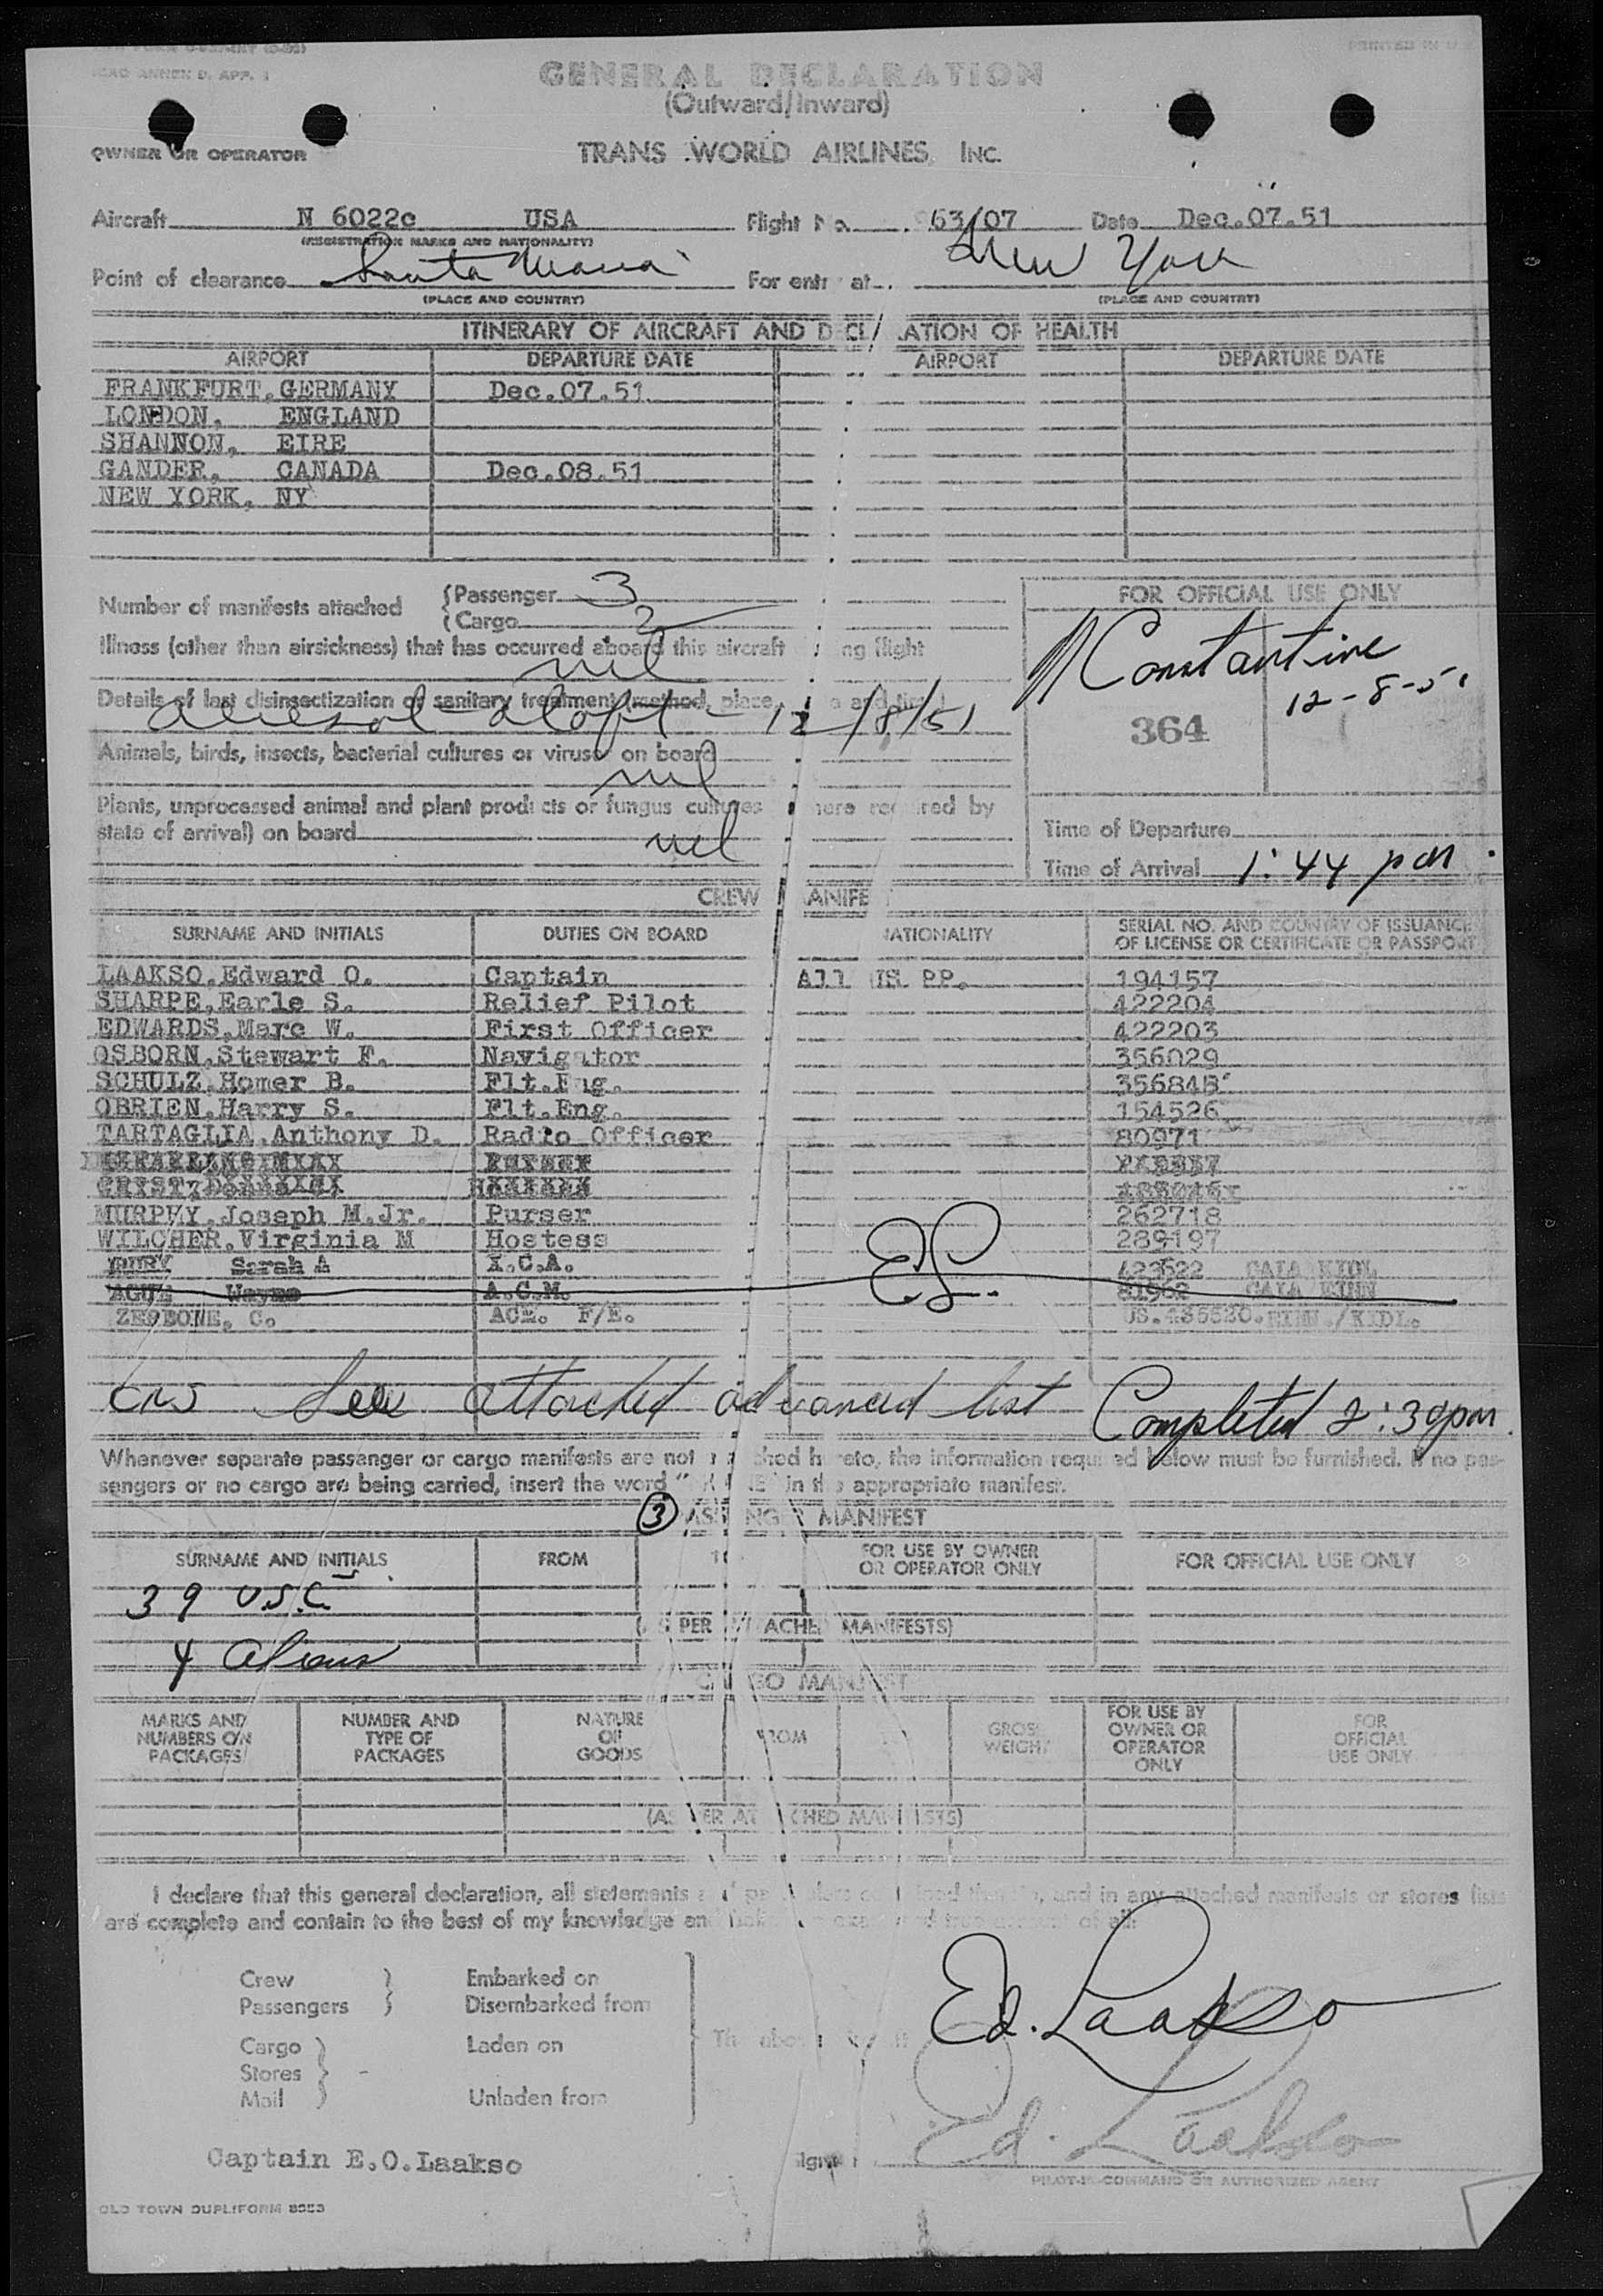 ICAO ANNEX 9, APP. 1
PRINTED IN U.S.
GENERAL DECLARATION
(Outward/Inward)
OWNER OR OPERATOR
TRANS WORLD AIRLINES, INC.
Aircraft N 6022c USA Flight No. 963/07 Date Dec.07.51
(REGISTRATION MARKS AND NATIONALITY)
Point of clearance Santa Maria For entry at New York
(PLACE AND COUNTRY) (PLACE AND COUNTRY)
ITINERARY OF AIRCRAFT AND DECLARATION OF HEALTH
AIRPORT DEPARTURE DATE AIRPORT DEPARTURE DATE
FRANKFURT, GERMANY Dec.07.51
LONDON, ENGLAND
SHANNON, EIRE
GANDER, CANADA Dec.08.51
NEW YORK, NY
Number of manifests attached
Passenger 3
Cargo 2
FOR OFFICIAL USE ONLY
Illness (other than airsickness) that has occurred aboard this aircraft ing flight
nil
Constantine
12-8-51
Details of last disinsectization or sanitary treatment (method, place,
aerosol aloft - 12/8/51
364
Animals, birds, insects, bacterial cultures or viruse on board
nil
Plants, unprocessed animal and plant products or fungus cultures here required by
state of arrival) on board nil
Time of Departure
Time of Arrival 1:44 pm
CREW MANIFE
SURNAME AND INITIALS DUTIES ON BOARD NATIONALITY SERIAL NO. AND COUNTRY OF ISSUANCE
OF LICENSE OR CERTIFICATE OR PASSPORT
LAAKSO, Edward O. Captain All US PP. 194157
SHARPE, Earle S. Relief Pilot 422204
EDWARDS, Marc W. First Officer 422203
OSBORN, Stewart F. Navigator 356029
SCHULZ, Homer B. Flt.Eng. 356845
OBRIEN, Harry S. Flt.Eng. 154526
TARTAGLIA, Anthony D. Radio Officer 80971
MURPHY, Joseph M.Jr. Purser 262718
WILCHER, Virginia M Hostess 289197
Sarah A X.C.A. 423522 GALA KIDL
Wayne A.C.M. 81962 GALA
E.L.
ZERBONE, C. ACM. F/E. US.
See attached advanced list Completed 2:30pm.
Whenever separate passenger or cargo manifests are not attached hereto, the information required below must be furnished. If no pas-
sengers or no cargo are being carried, insert the word "NONE" in the appropriate manifest.
3 PASSENGER MANIFEST
SURNAME AND INITIALS FROM TO FOR USE BY OWNER
OR OPERATOR ONLY FOR OFFICIAL USE ONLY
39 U.S.C.
(AS PER ATTACHED MANIFESTS)
4 Aliens
CARGO MANIFEST
MARKS AND
NUMBERS ON
PACKAGES
NUMBER AND
TYPE OF
PACKAGES
NATURE
OF
GOODS
FROM
GROSS
WEIGHT
FOR USE BY
OWNER OR
OPERATOR
ONLY
FOR
OFFICIAL
USE ONLY
(AS PER ATTACHED MANIFESTS)
I declare that this general declaration, all statements and particulars contained therein, and in any attached manifests or stores lists
are complete and contain to the best of my knowledge and true account of all:
Crew
Passengers
Embarked on
Disembarked from
Cargo
Stores
Mail
Laden on
Unladen from
The above
Ed. Laakso
Ed. Laakso
Captain E.O.Laakso
PILOT-IN-COMMAND OR AUTHORIZED AGENT
OLD TOWN DUPLIFORM 8053